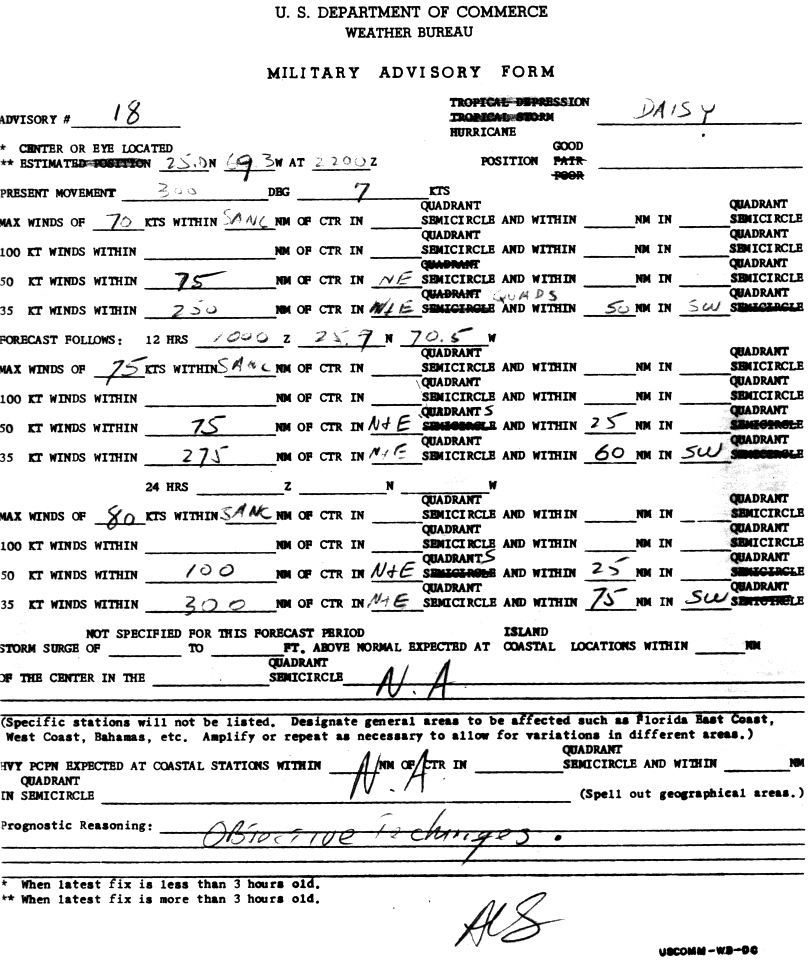 U. S. DEPARTMENT OF COMMERCE
WEATHER BUREAU
MILITARY ADVISORY FORM
TROPICAL DEPRESSION
ADVISORY # 18 TROPICAL STORM DAISY
HURRICANE
* CENTER OR EYE LOCATED GOOD
** ESTIMATED POSITION 25.0N 69.3W AT 2200Z POSITION FAIR
POOR
PRESENT MOVEMENT 300 DEG 7 KTS
QUADRANT QUADRANT
MAX WINDS OF 70 KTS WITHIN SANC NM OF CTR IN SEMICIRCLE AND WITHIN NM IN SEMICIRCLE
QUADRANT QUADRANT
100 KT WINDS WITHIN NM OF CTR IN SEMICIRCLE AND WITHIN NM IN SEMICIRCLE
QUADRANT QUADRANT
50 KT WINDS WITHIN 75 NM OF CTR IN NE SEMICIRCLE AND WITHIN NM IN SEMICIRCLE
QUADRANT QUADS QUADRANT
35 KT WINDS WITHIN 250 NM OF CTR IN N+E SEMICIRCLE AND WITHIN 50 NM IN SW SEMICIRCLE
FORECAST FOLLOWS: 12 HRS 1000 Z 25.9 N 70.5 W
QUADRANT QUADRANT
MAX WINDS OF 75 KTS WITHIN SANC NM OF CTR IN SEMICIRCLE AND WITHIN NM IN SEMICIRCLE
QUADRANT QUADRANT
100 KT WINDS WITHIN NM OF CTR IN SEMICIRCLE AND WITHIN NM IN SEMICIRCLE
QUADRANTS QUADRANT
50 KT WINDS WITHIN 75 NM OF CTR IN N+E SEMICIRCLE AND WITHIN 25 NM IN SEMICIRCLE
QUADRANT QUADRANT
35 KT WINDS WITHIN 275 NM OF CTR IN N+E SEMICIRCLE AND WITHIN 60 NM IN SW SEMICIRCLE
24 HRS Z N W
QUADRANT QUADRANT
MAX WINDS OF 80 KTS WITHIN SANC NM OF CTR IN SEMICIRCLE AND WITHIN NM IN SEMICIRCLE
QUADRANT QUADRANT
100 KT WINDS WITHIN NM OF CTR IN SEMICIRCLE AND WITHIN NM IN SEMICIRCLE
QUADRANTS QUADRANT
50 KT WINDS WITHIN 100 NM OF CTR IN N+E SEMICIRCLE AND WITHIN 25 NM IN SEMICIRCLE
QUADRANT QUADRANT
35 KT WINDS WITHIN 300 NM OF CTR IN N+E SEMICIRCLE AND WITHIN 75 NM IN SW SEMICIRCLE
NOT SPECIFIED FOR THIS FORECAST PERIOD ISLAND
STORM SURGE OF TO FT. ABOVE NORMAL EXPECTED AT COASTAL LOCATIONS WITHIN NM
QUADRANT
OF THE CENTER IN THE SEMICIRCLE N.A
(Specific stations will not be listed. Designate general areas to be affected such as Florida East Coast,
West Coast, Bahamas, etc. Amplify or repeat as necessary to allow for variations in different areas.)
QUADRANT
HVY PCPN EXPECTED AT COASTAL STATIONS WITHIN NM OF CTR IN SEMICIRCLE AND WITHIN NM
QUADRANT N.A
IN SEMICIRCLE (Spell out geographical areas.)
Prognostic Reasoning: Objective
* When latest fix is less than 3 hours old.
** When latest fix is more than 3 hours old.
USCOMM-WB-DC